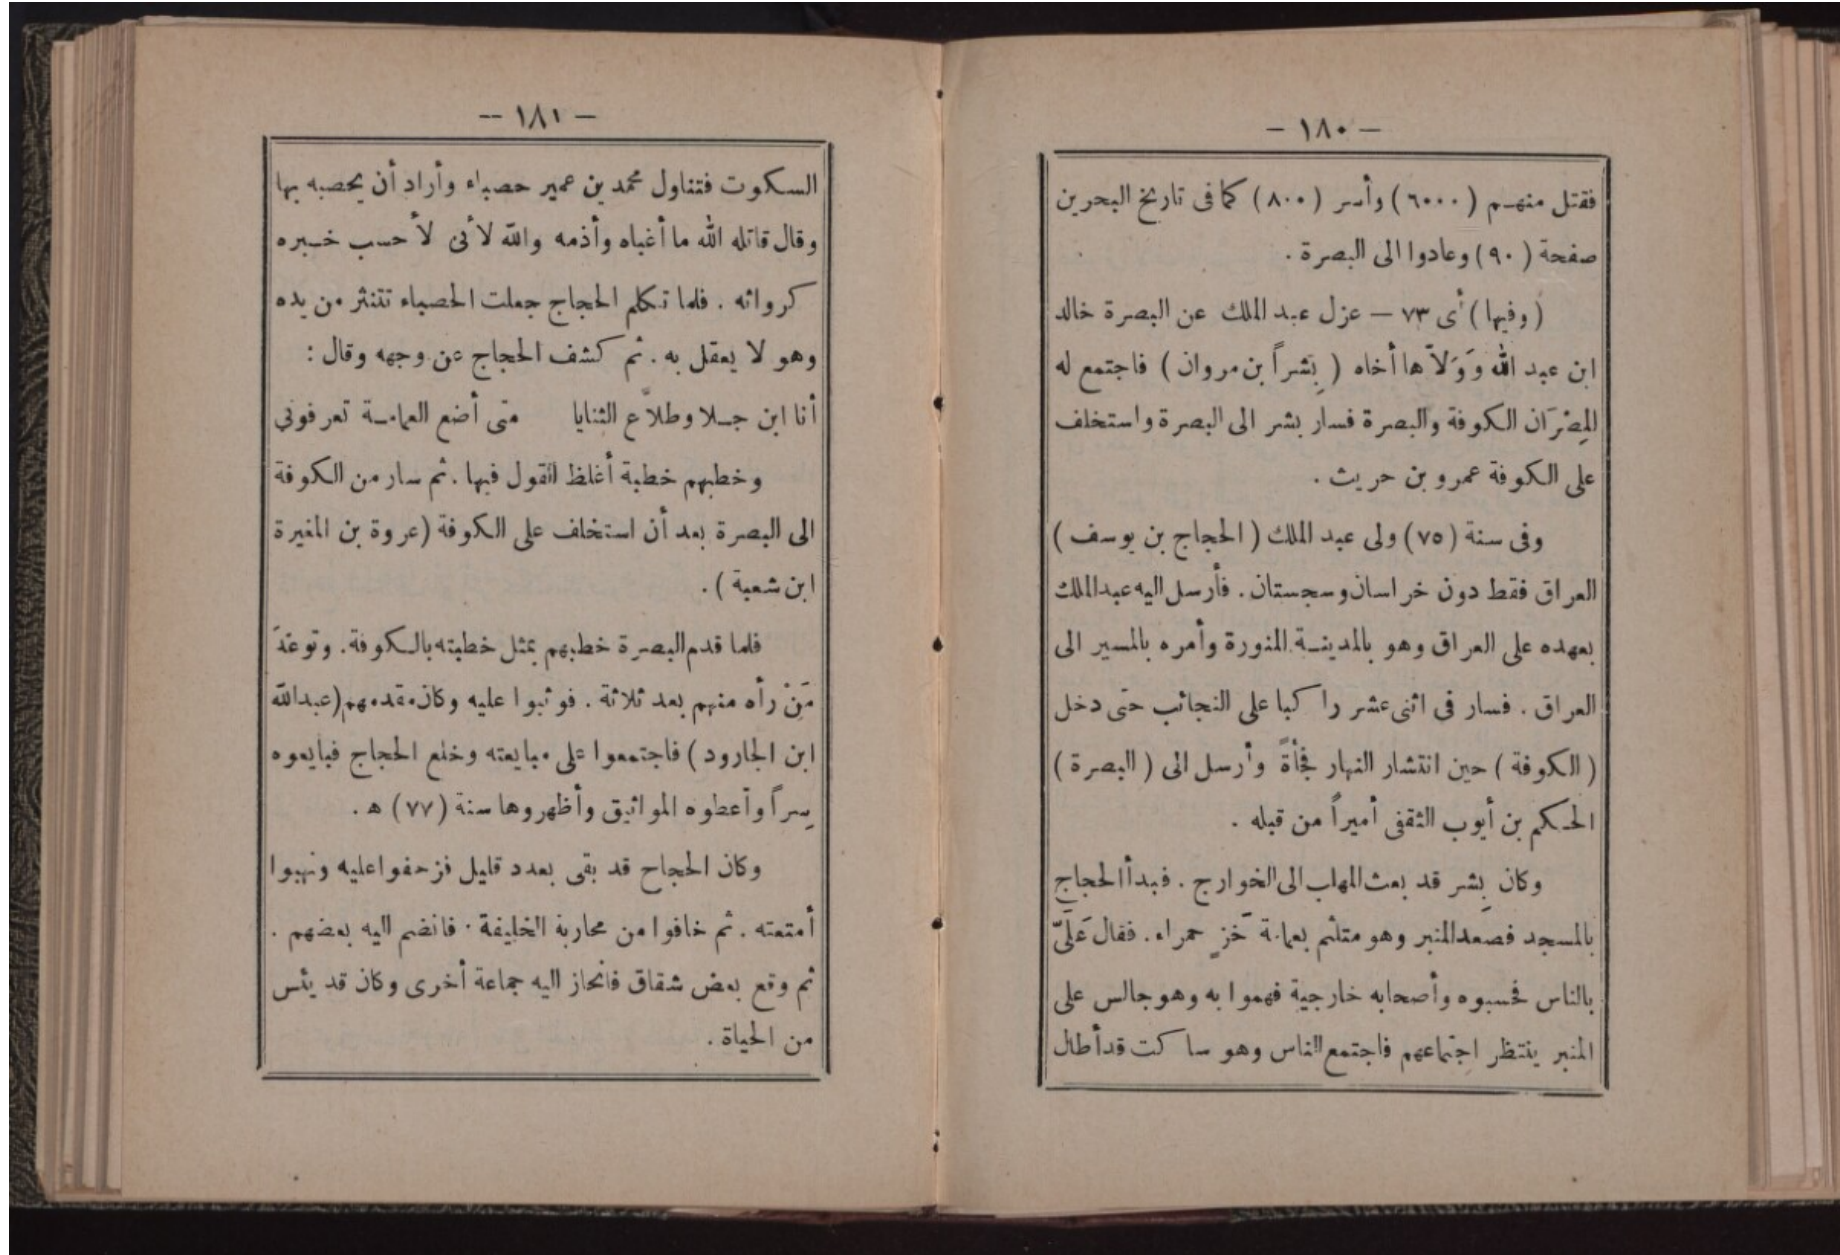 — ١٨٠ —
فقتل منهم (٦٠٠٠) وأسر (٨٠٠) كما فى تاريخ البحرين
صفحة (٩٠) وعادوا الى البصرة .
(وفيها) أى ٧٣ — عزل عبد الملك عن البصرة خالد
ابن عبد الله وَوَلاّها أخاه (بِشراً بن مروان) فاجتمع له
المِصْرَان الكوفة والبصرة فسار بشر الى البصرة واستخلف
على الكوفة عمرو بن حريث .
وفى سنة (٧٥) ولى عبد الملك (الحجاج بن يوسف)
العراق فقط دون خراسان وسجستان . فأرسل اليه عبد الملك
بعهده على العراق وهو بالمدينة المنورة وأمره بالمسير الى
العراق . فسار فى اثنى عشر راكبا على النجائب حتى دخل
(الكوفة) حين انتشار النهار فجأةً وأرسل الى (البصرة)
الحكم بن أيوب الثقفى أميراً من قبله .
وكان بِشر قد بعث المهلب الى الخوارج . فبدأ الحجاج
بالمسجد فصعد المنبر وهو متلثم بعمامة خَزٍ حمراء . فقال عَلَىَّ
بالناس فحسبوه وأصحابه خارجية فهموا به وهو جالس على
المنبر ينتظر اجِتماعهم فاجتمع الناس وهو ساكت قد أطال
— ١٨١ —
السكوت فتناول محمد بن عمير حصباء وأراد أن يحصبه بها
وقال قاتله الله ما أغباه وأذمه والله لأنى لأحسب خبره
كروائه . فلما تكلم الحجاج جعلت الحصباء تتنثر من يده
وهو لا يعقل به . ثم كشف الحجاج عن وجهه وقال :
أنا ابن جلا وطلاَّع الثنايا متى أضع العمامة تعرفوني
وخطبهم خطبة أغلظ القول فيها . ثم سار من الكوفة
الى البصرة بعد أن استخلف على الكوفة (عروة بن المغيرة
ابن شعبة) .
فلما قدم البصرة خطبهم بمثل خطبته بالكوفة . وتوعَّدَ
مَنْ رأه منهم بعد ثلاثة . فوثبوا عليه وكان مقدمهم (عبد الله
ابن الجارود) فاجتمعوا على مبايعته وخلع الحجاج فبايعوه
سِراً وأعطوه المواثيق وأظهروها سنة (٧٧) ه .
وكان الحجاح قد بقى بعدد قليل فزحفوا عليه ونهبوا
أمتعته . ثم خافوا من محاربة الخليفة . فانضم اليه بعضهم .
ثم وقع بعض شقاق فانحاز اليه جماعة أخرى وكان قد يئس
من الحياة .